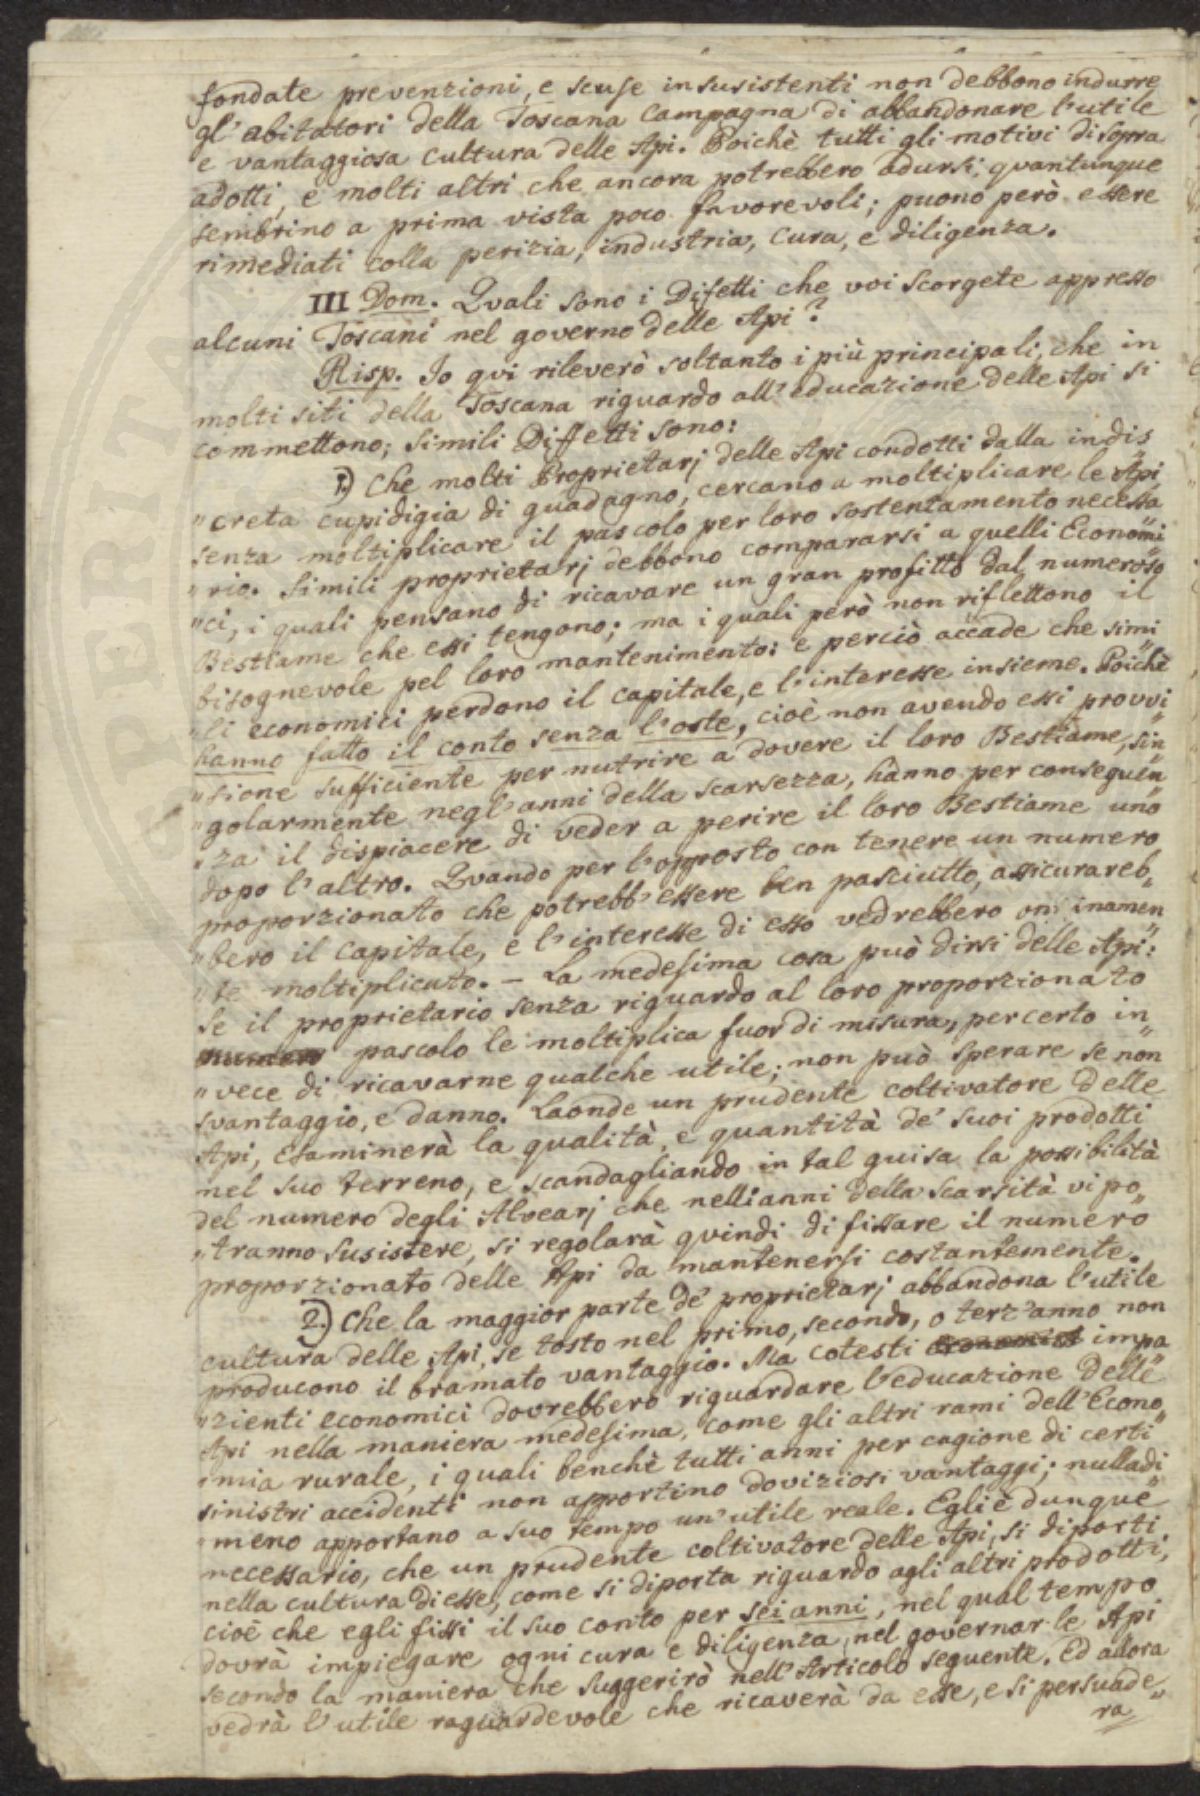 fondate prevenzioni, e scuse insusistenti non debbono indurre
gl' abitatori della Toscana Campagna di abbandonare l'utile
e vantaggiosa cultura delle Api. Poichè tutti gli motivi di sopra
adotti, e molti altri che ancora potrebbero adursi, quantunque
sembrino a prima vista poco favorevoli; puono però essere
rimediati colla perizia, industria, cura, e diligenza.
III Dom. Quali sono i Difetti che voi scorgete appresso
alcuni Toscani nel governo delle Api?
Risp. Io qui rileverò soltanto i più principali, che in
molti siti della Toscana riguardo all'educazione delle Api si
commettono; simili Diffetti sono:
1.) Che molti Proprietarj delle Api condotti dalla indis„
„creta cupidigia di guadagno, cercano a moltiplicare le Api
senza moltiplicare il pascolo per loro sostentamento necessa„
„rio. Simili proprietarj debbono compararsi a quelli Economi„
„ci, i quali pensano di ricavare un gran profitto dal numeroso
Bestiame che essi tengono; ma i quali però non riflettono il
bisognevole pel loro mantenimento: e perciò accade che simi„
„li economici perdono il capitale, e l'interesse insieme. Poichè
hanno fatto il conto senza l'oste, cioè non avendo essi provvi„
„sione sufficiente per nutrire a dovere il loro Bestiame, sin„
„golarmente negl'anni della scarsezza, hanno per conseguen„
„za il dispiacere di veder a perire il loro Bestiame uno
dopo l'altro. Quando per l'opposto con tenere un numero
proporzionato che potrebb'essere ben pasciutto, assicurareb„
„bero il capitale, e l'interesse di esso vedrebbero inamen„
„te moltiplicato. – La medesima cosa può dirsi delle Api:
Se il proprietario senza riguardo al loro proporzionato
pascolo le moltiplica fuor di misura, per certo in„
„vece di ricavarne qualche utile; non può sperare se non
svantaggio, e danno. Laonde un prudente coltivatore delle
Api, esaminerà la qualità, e quantità de' suoi prodotti
nel suo terreno, e scandagliando in tal guisa la possibilità
del numero degli Alvearj che nelli anni della scarsità vi po„
„tranno susistere, si regolarà quindi di fissare il numero
proporzionato delle Api da mantenersi costantemente.
2.) Che la maggior parte de' proprietarj abbandona l'utile
cultura delle Api, se tosto nel primo, secondo, o terz'anno non
producono il bramato vantaggio. Ma cotesti impa„
„zienti economici dovrebbero riguardare l'educazione delle
Api nella maniera medesima, come gli altri rami dell'Econo„
„mia rurale, i quali benchè tutti anni per cagione di certi
sinistri accidenti non apportino doviziosi vantaggi; nulladi„
„meno apportano a suo tempo un'utile reale. Egli è dunque
necessario, che un prudente coltivatore delle Api, si diporti
nella cultura di esse, come si diporta riguardo agli altri prodotti,
cioè che egli fissi il suo conto per sei anni, nel qual tempo
dovrà impiegare ogni cura e diligenza, nel governar le Api
secondo la maniera che suggerirò nell'Articolo seguente. Ed allora
vedrà l'utile raguardevole che ricaverà da esse, e si persuade„
ra